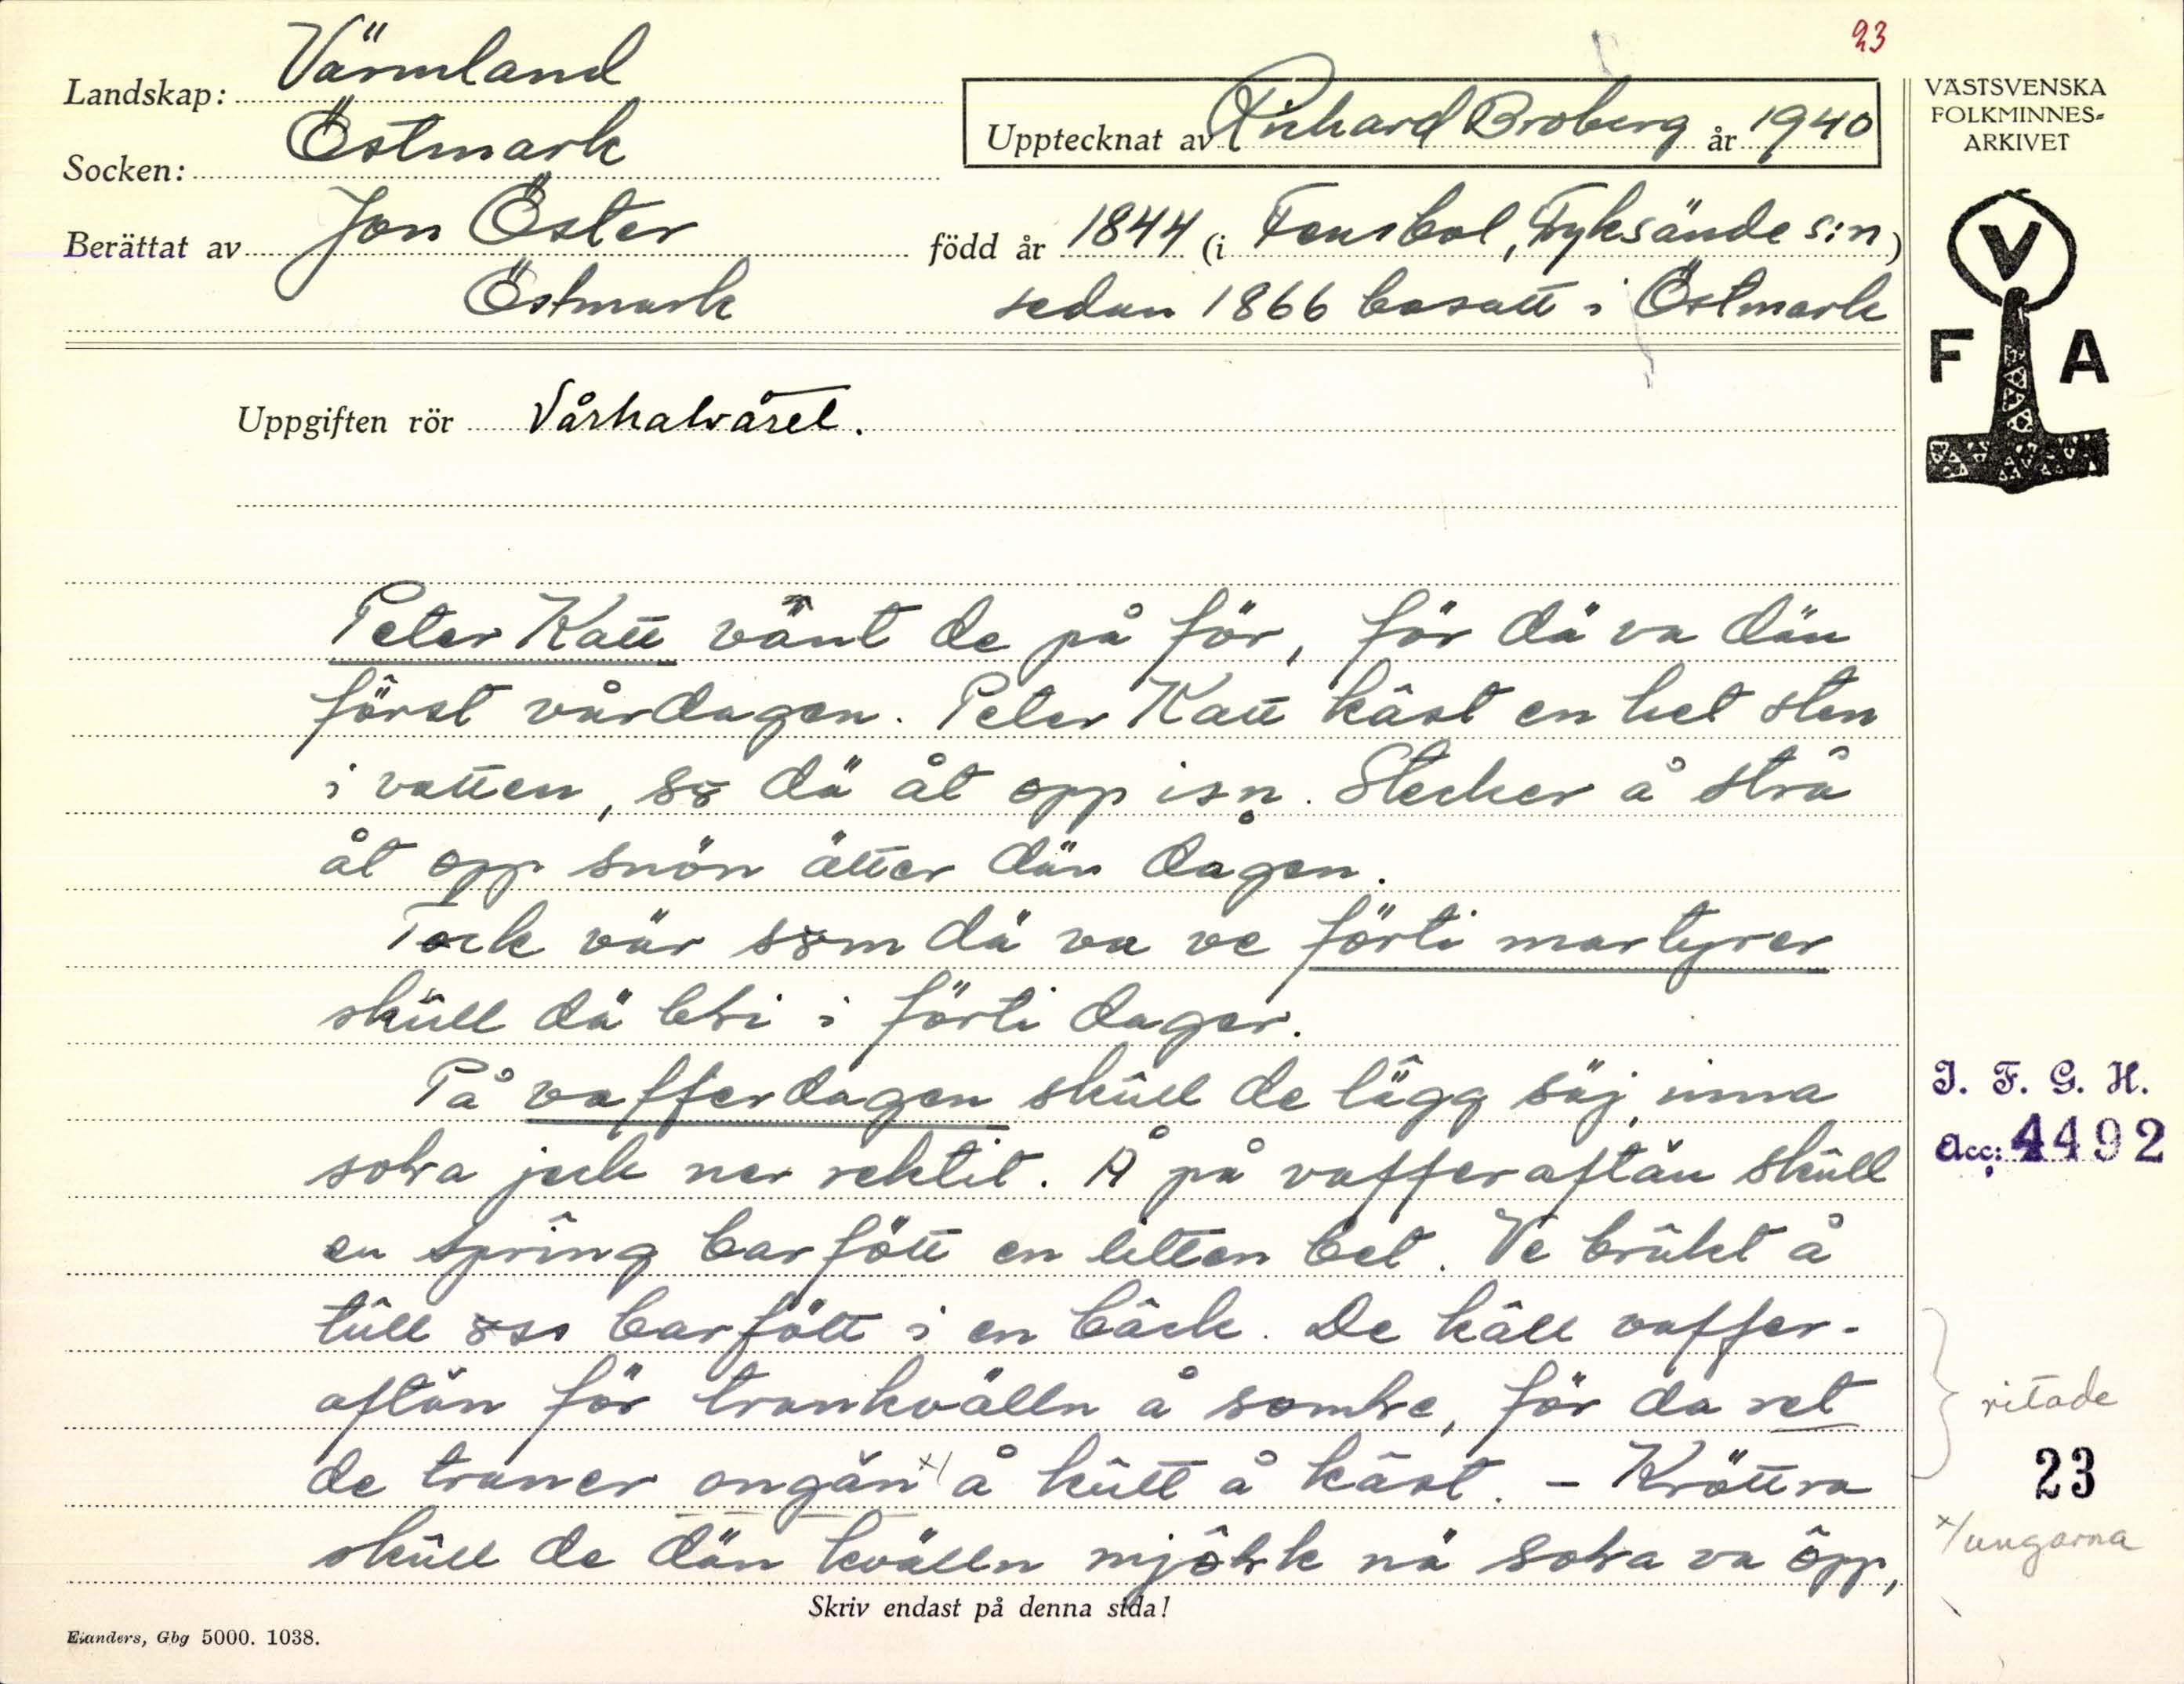 23
Landskap: Värmland
Socken: Östmark
Upptecknat av Richard Broberg år 1940
Berättat av Jon Öster född år 1844 (i Fensbol, Fyksände s:n)
Östmark sedan 1866 bosatt i Östmark
VÄSTSVENSKA
FOLKMINNES-
ARKIVET
V
F A
Uppgiften rör Vårhalvåret.
Peter Katt vänt de på för, för dä va dän
först vårdagen. Peter Katt kâst en het sten
i vatten, so dä åt opp isn. Stecker å strå
åt opp snön ätter dän dagen.
Tock vär som dä va ve förti martyrer
skûll dä bhi i förti dager.
På vafferdagen skûll de lägg säj inna
sola jeck ner rektit. Å på vafferaftän skûll
en spring barfött en litten bet. Ve brûkt å
tûll oss barfött i en bäck. De kâll vaffer-
aftän för trankvälln å somhe, för da ret
de traner ongän x/ å kûtt å kâst. - Kröttra
skûll de dän kvälln mjôhk nä sola va ôpp,
I. F. G. H.
Acc: 4492
ritade
23
x/ ungarna
Skriv endast på denna sida!
Elanders, Gbg 5000. 1038.